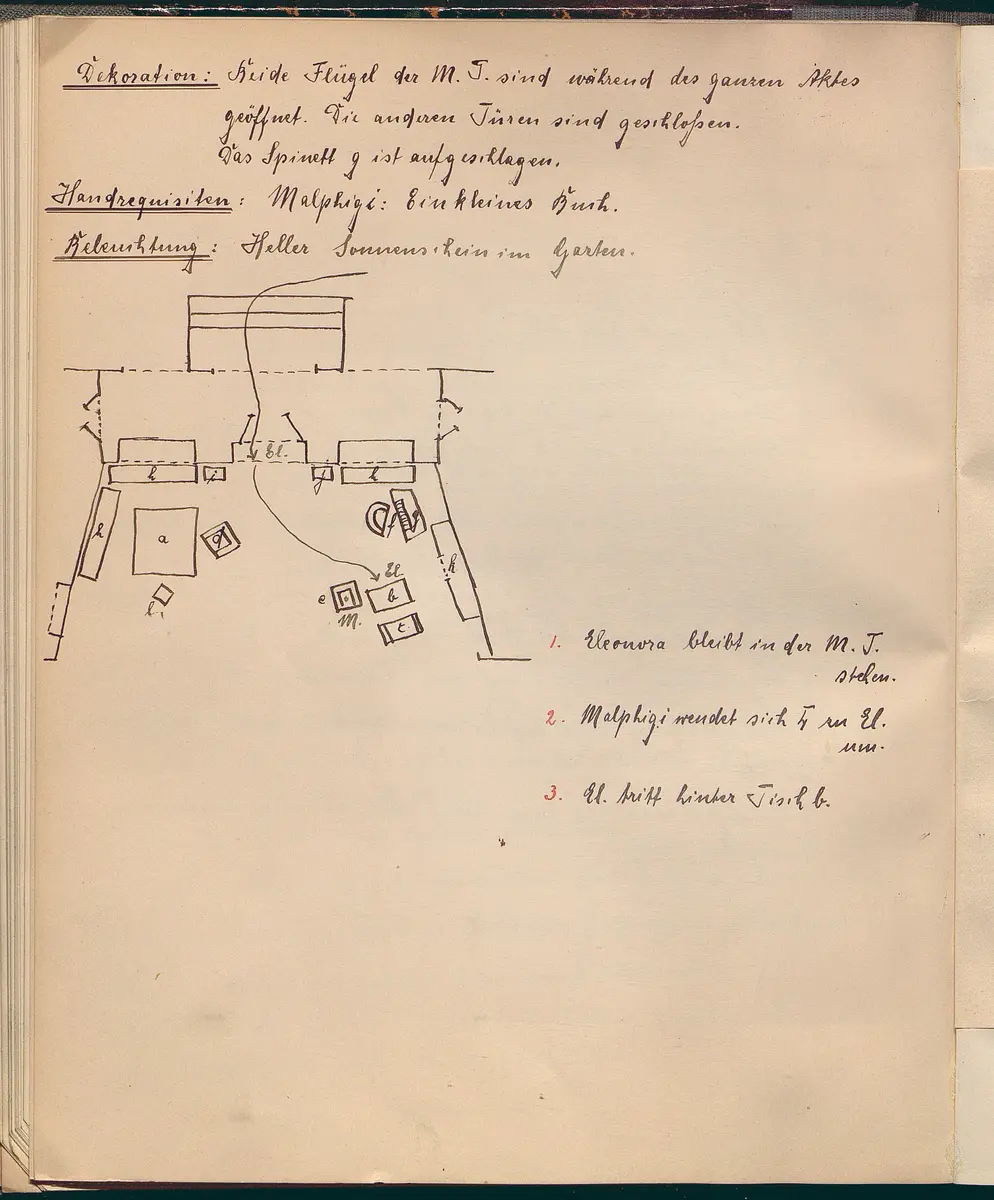 Dekoration: Beide Flügel der M. T. sind während des ganzen Aktes
geöffnet. Die anderen Türen sind geschloßen.
Das Spinett g ist aufgeschlagen.
Handrequisiten: Malphigi: Ein kleines Buch.
Beleuchtung: Heller Sonnenschein im Garten.
El.
k i j k
h a d f g h
El.
e b
l. M. c
1. Eleonora bleibt in der M. T.
stehen.
2. Malphigi wendet sich zu El.
um.
3. El. tritt hinter Tisch b.